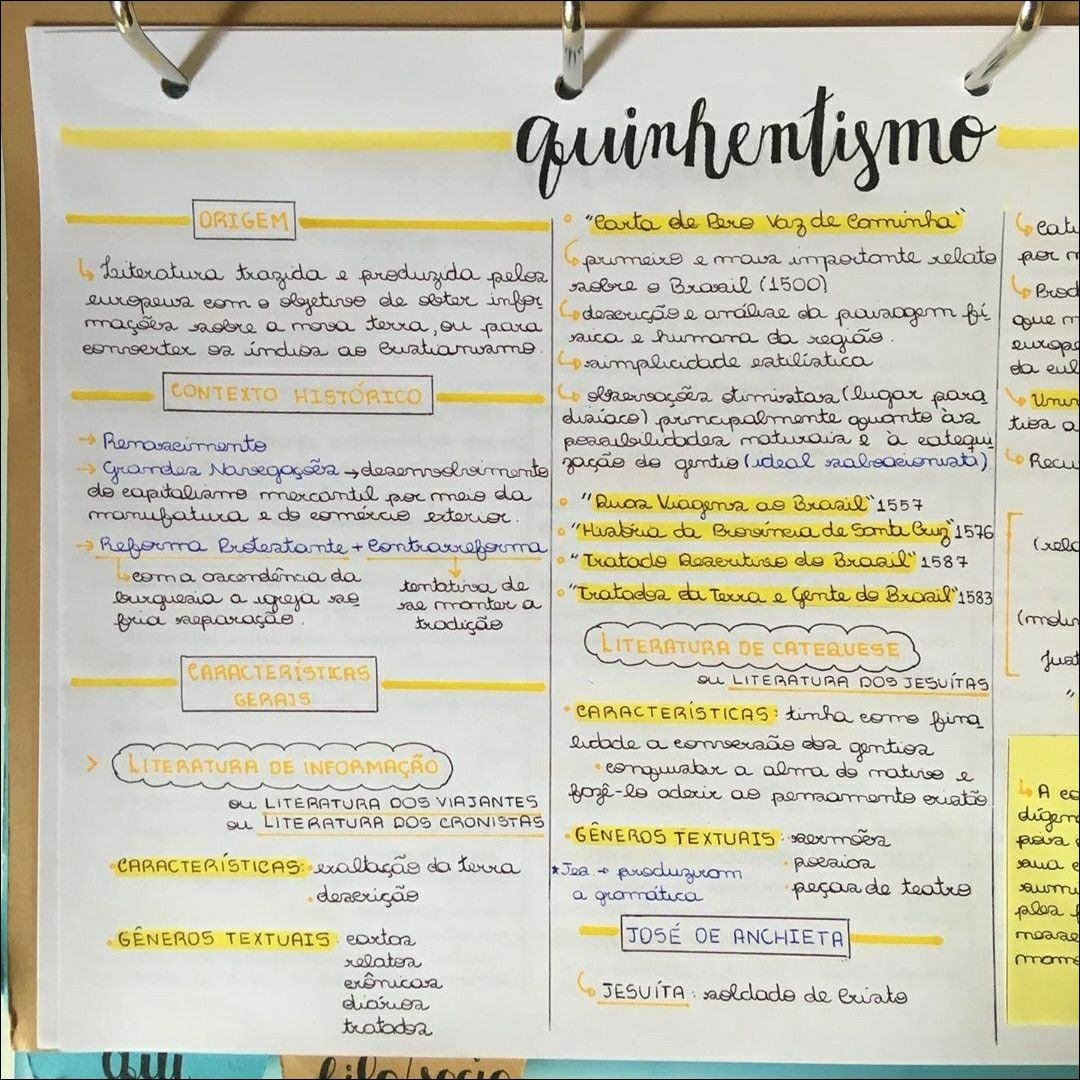 quinhentismo
ORIGEM
Literatura trazida e produzida pelos
europeus com o objetivo de obter infor
mações sobre a nova terra, ou para
converter os índios ao Cristianismo.
CONTEXTO HISTÓRICO
→ Renascimento
→ Grandes Navegações → desenvolvimento
do capitalismo mercantil por meio da
manufatura e do comércio exterior.
→ Reforma Protestante + Contrarreforma
com a ascendência da
burguesia a igreja so
fria separação.
tentativa de
se manter a
tradição
CARACTERÍSTICAS
GERAIS
> LITERATURA DE INFORMAÇÃO
ou LITERATURA DOS VIAJANTES
ou LITERATURA DOS CRONISTAS
• CARACTERÍSTICAS: • exaltação da terra
• descrição
• GÊNEROS TEXTUAIS: cartas
relatos
crônicas
diários
tratados
• "Carta de Pero Vaz de Caminha"
primeiro e mais importante relato
sobre o Brasil (1500)
descrição e análise da paisagem fí
sica e humana da região.
simplicidade estilística
observações otimistas (lugar para
disíaco) principalmente quanto às
possibilidades naturais e à catequi
zação do gentio (ideal salvacionista)
• "Duas Viagens ao Brasil" 1557
• "História da Província de Santa Cruz" 1576
• "Tratado Descritivo do Brasil" 1587
• "Tratados da Terra e Gente do Brasil" 1583
LITERATURA DE CATEQUESE
ou LITERATURA DOS JESUÍTAS
• CARACTERÍSTICAS: tinha como fina
lidade a conversão dos gentios
• conquistar a alma do nativo e
fazê-lo aderir ao pensamento cristão.
• GÊNEROS TEXTUAIS: • sermões
• poesias
• peças de teatro
*Jes → produziram
a gramática
JOSÉ DE ANCHIETA
JESUÍTA: soldado de Cristo
por
que
da
A
sua
filo/socio